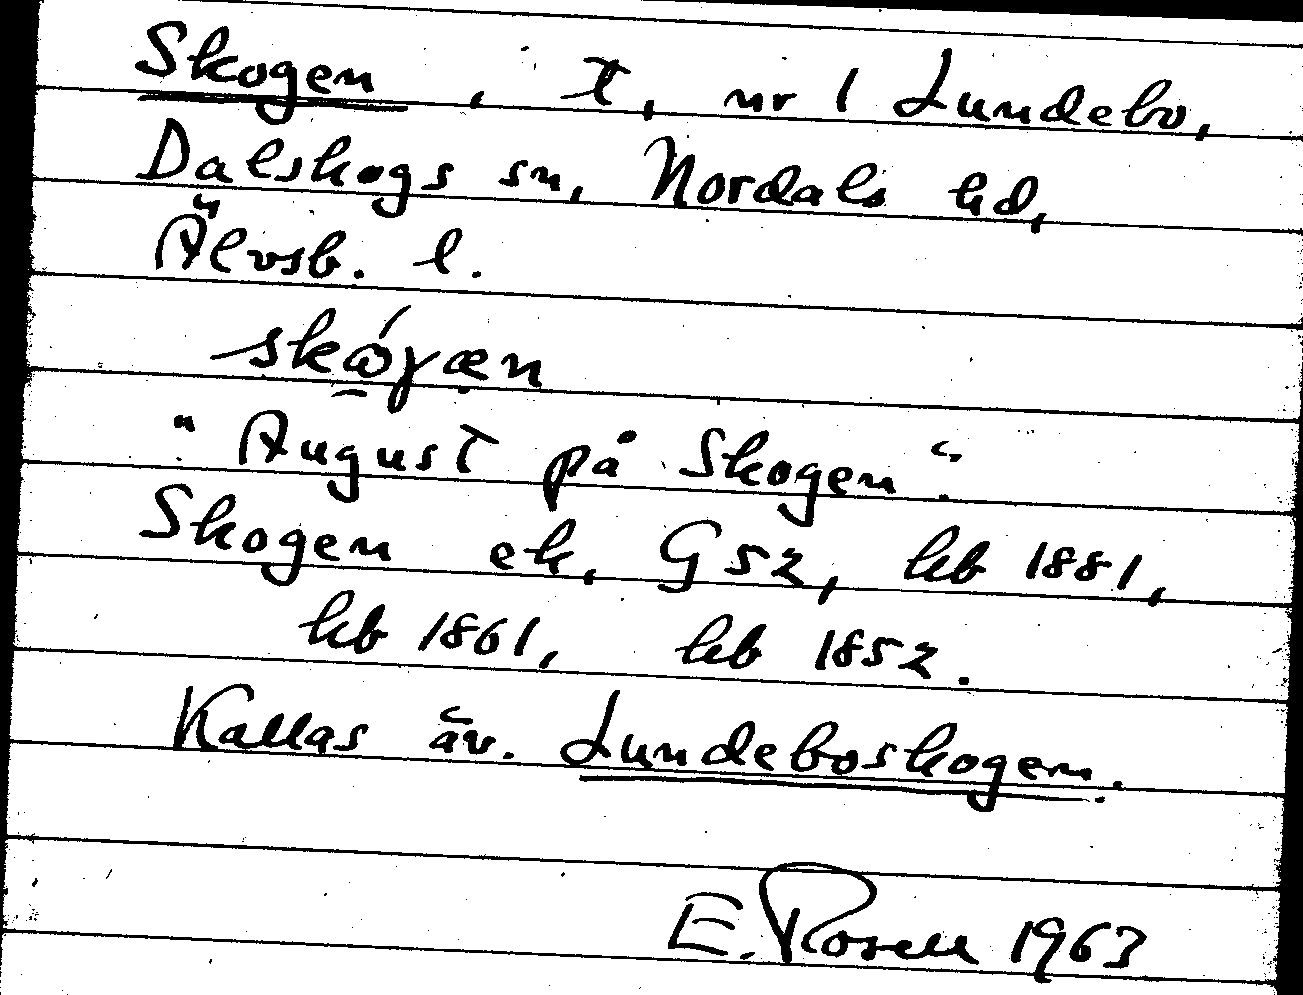 Skogen, t, nr 1 Lundebo,
Dalskogs sn, Nordals hd,
Älvsb. l.
skǿγæn
"August på Skogen".
Skogen ek, G 52, hb 1881,
hb 1861, hb 1852.
Kallas äv. Lundeboskogen.
E. Rosell 1963